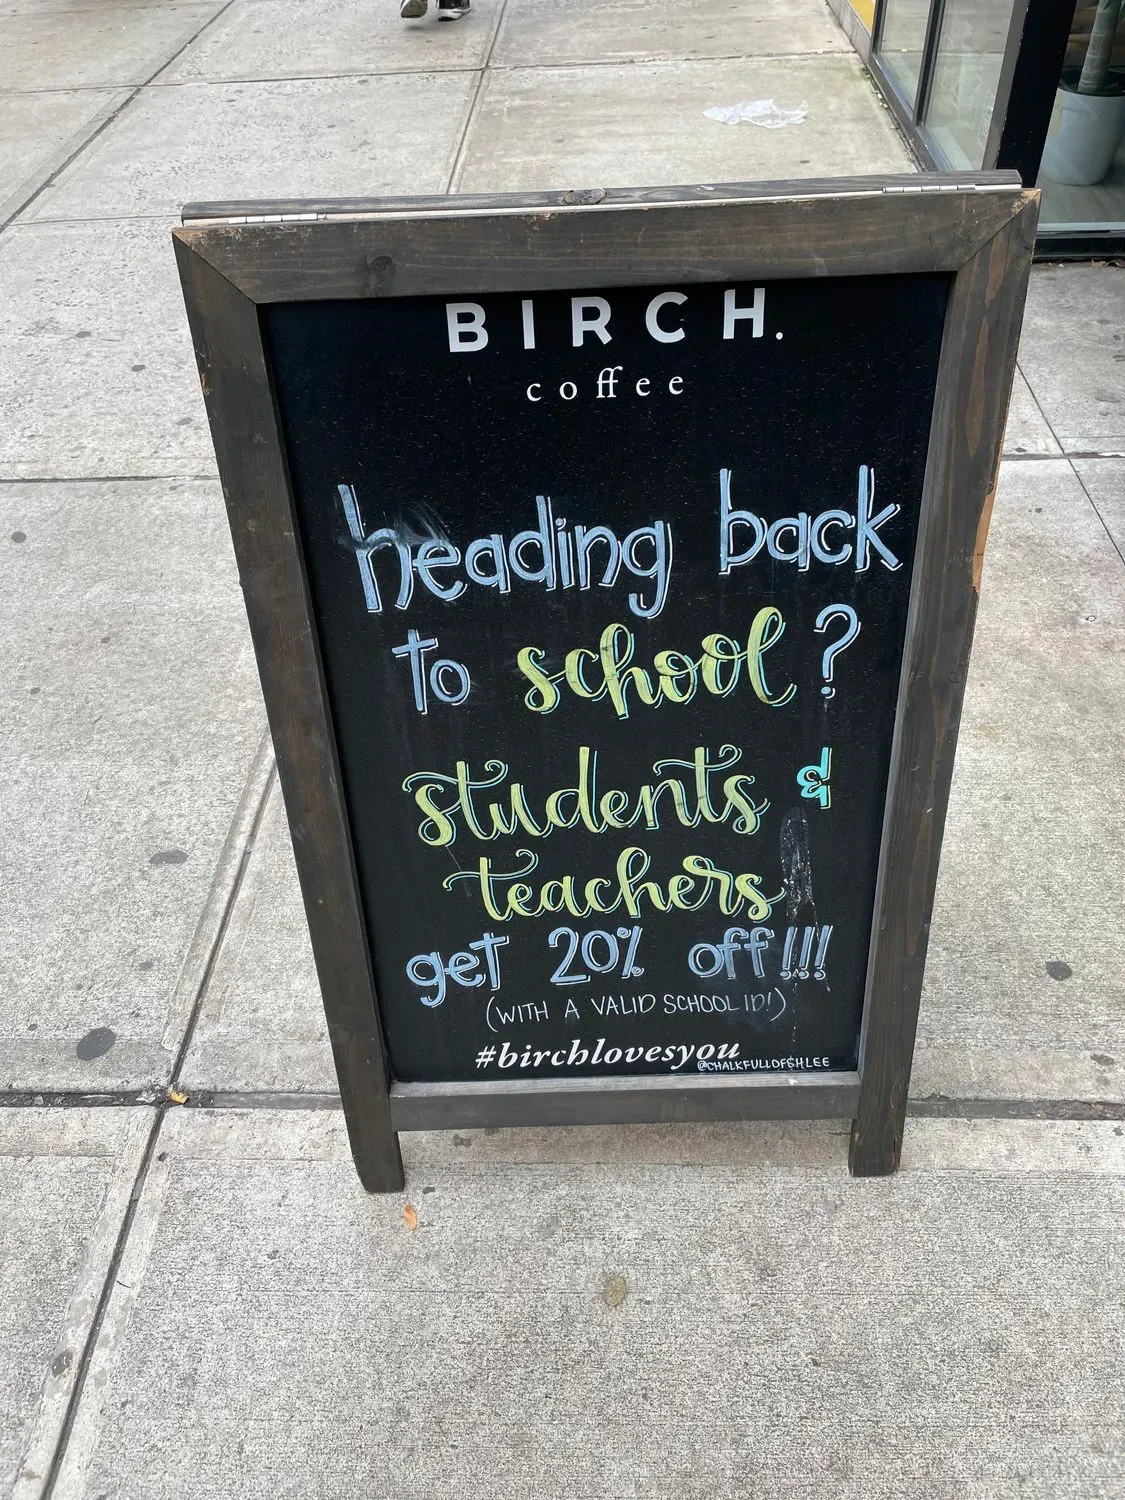 BIRCH.
coffee
heading back
to school?
students &
teachers
get 20% off!!!
(WITH A VALID SCHOOL ID!)
#birchlovesyou
@CHALKFULLOFSHLEE